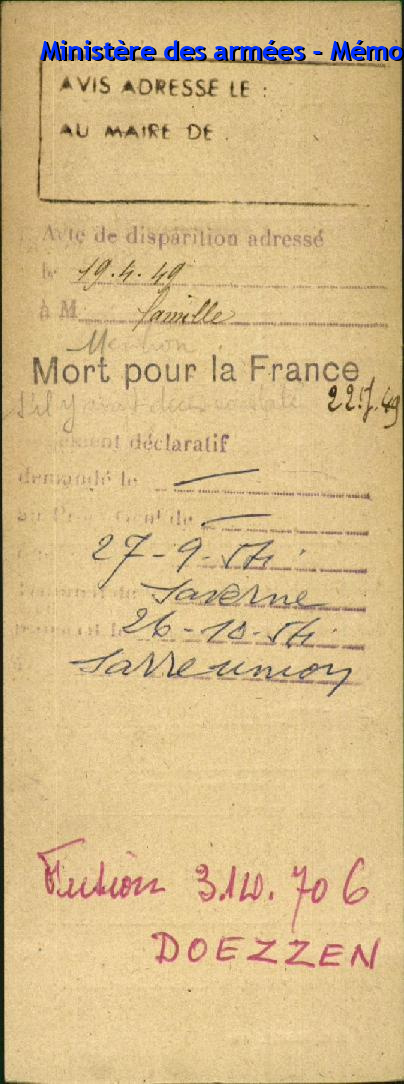 Ministère des armées - Mémo
AVIS ADRESSE LE :
AU MAIRE DE .
Acte de disparition adressé
le 19.4.49
à M famille
Mention
Mort pour la France
S'il y avait décès constaté
22.7.49
Jugement déclaratif
demandé le —
au Proc. Gént de —
27-9-54
Saverne
26-10-54
Sarreunion
Fusion 310.706
DOEZZEN